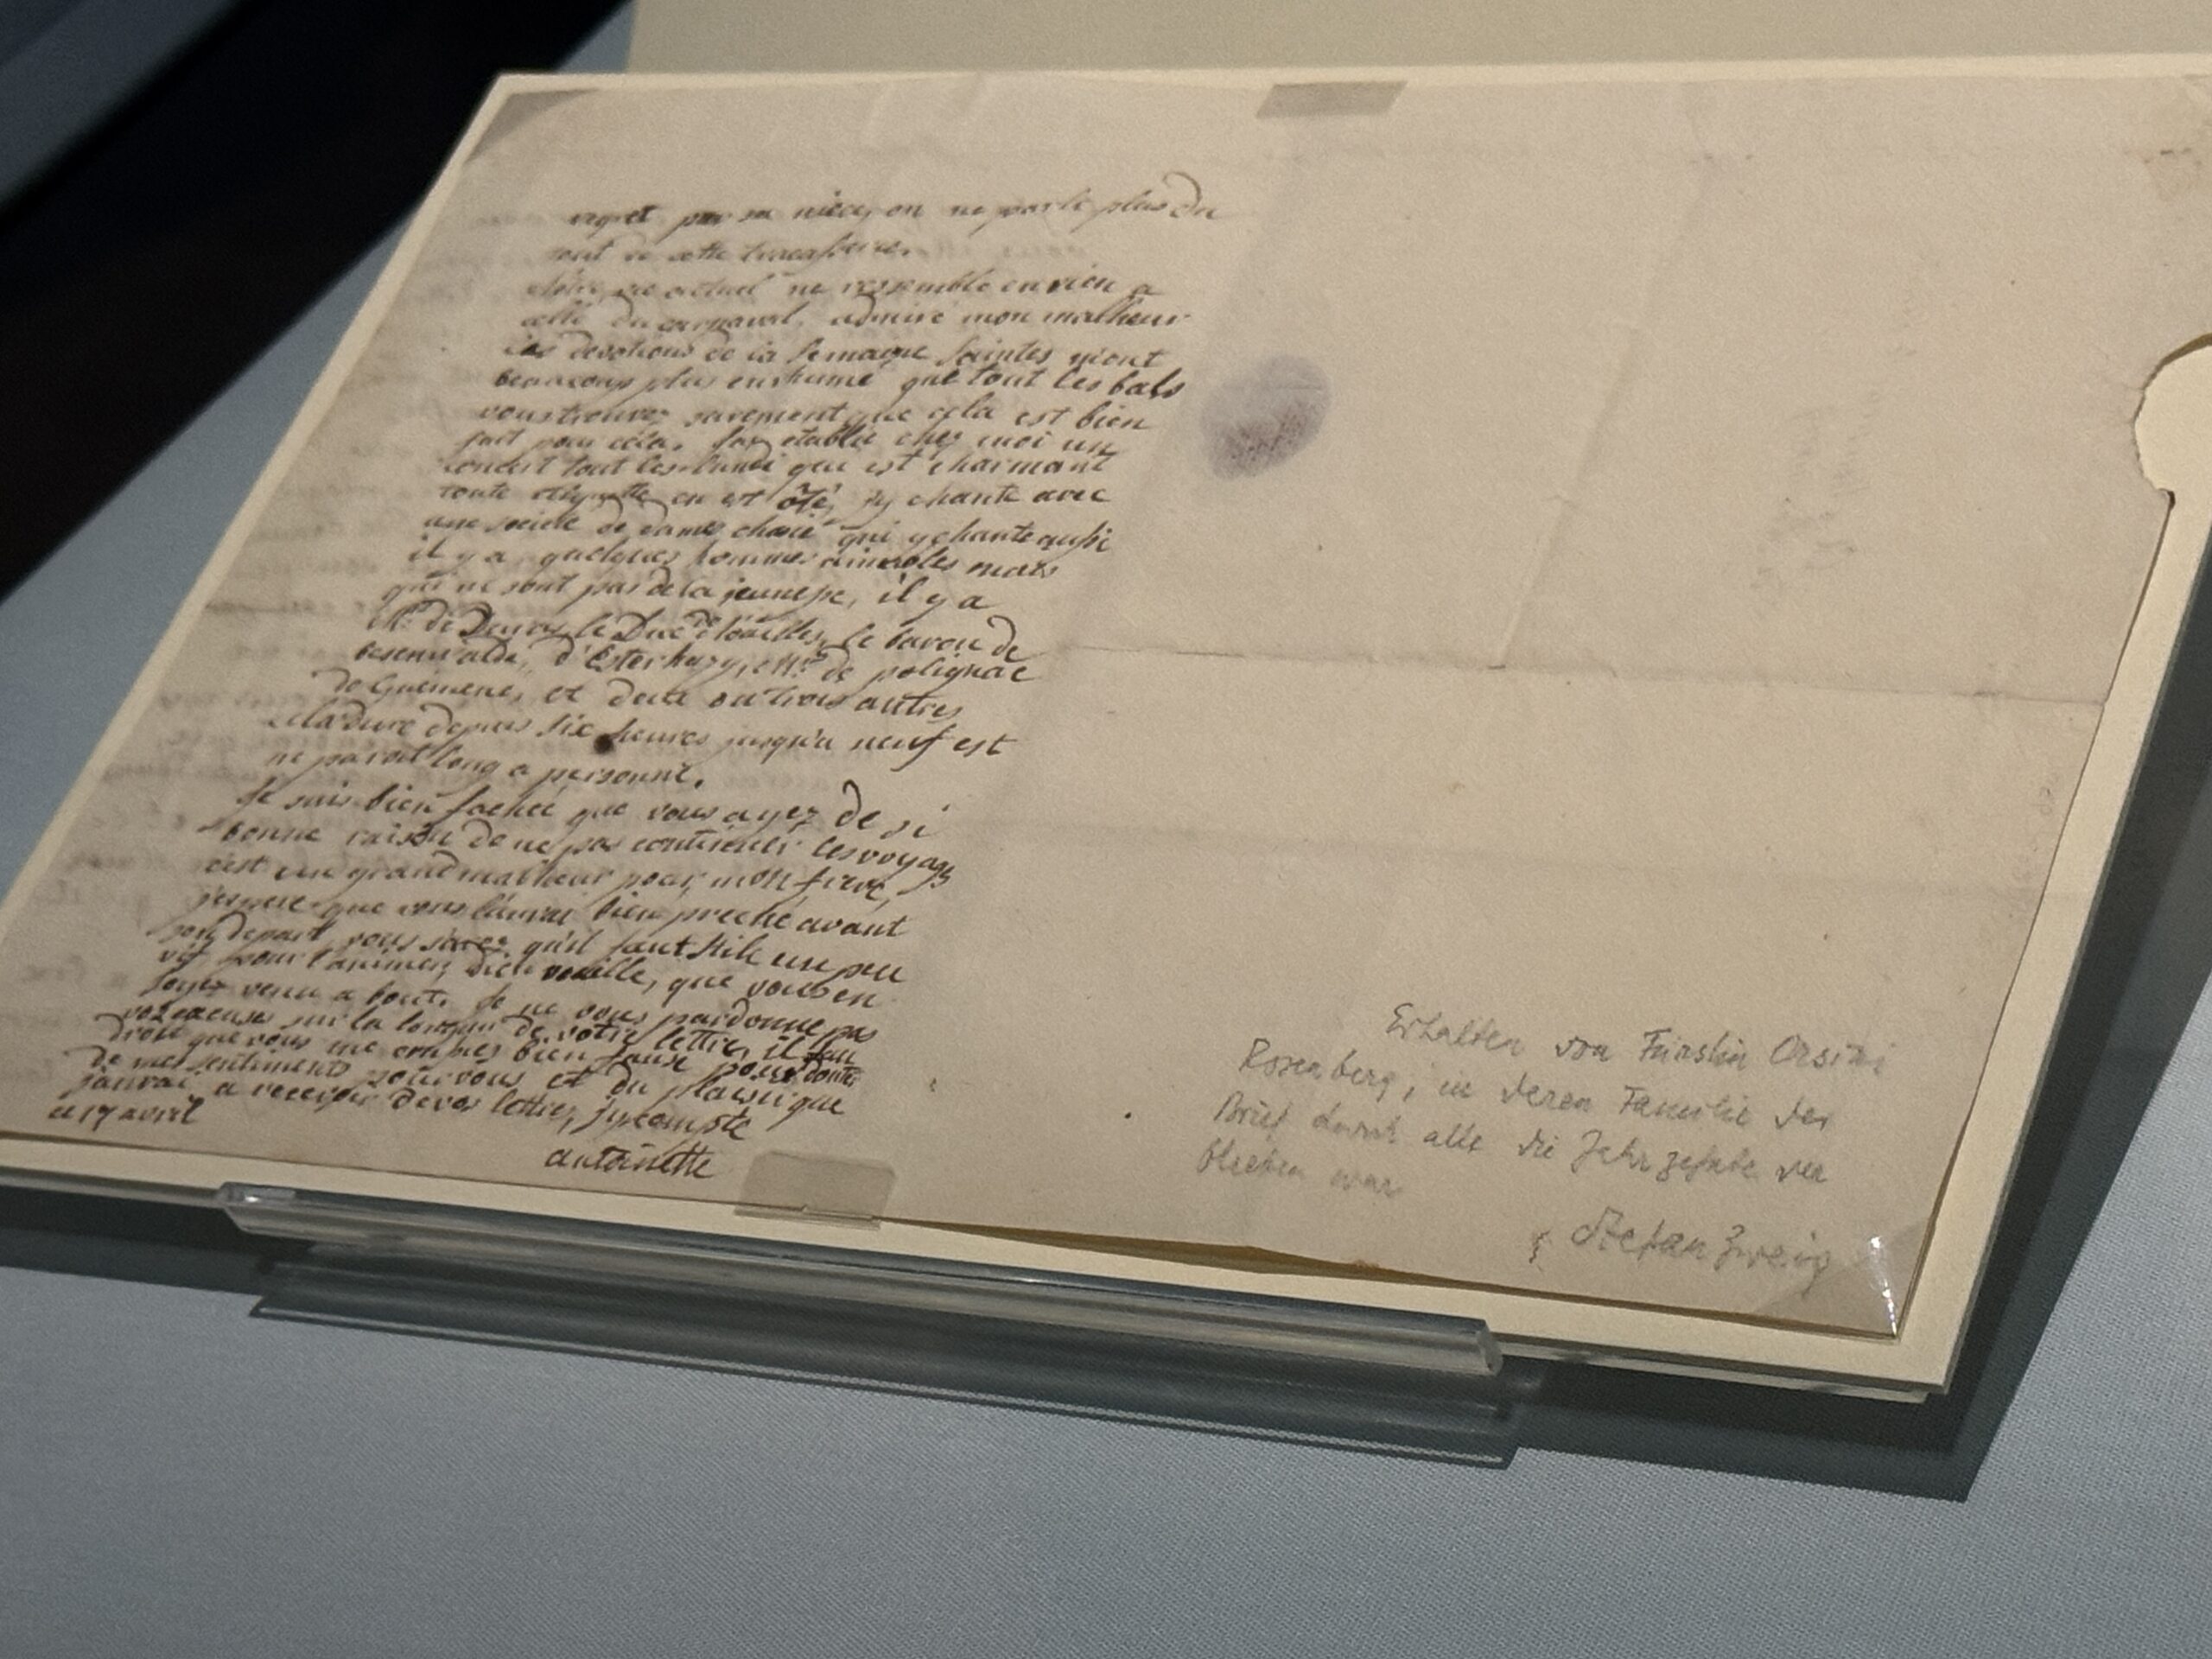 regret par sa niece, on ne parle plus du
tout de cette tracasserie.
Notre vie actuel ne ressemble en rien a
celle du carnaval. admiré mon malheur
les devotions de la semaine saintes m'ont
beaucoup plus enrhumé que tout les bals
vous trouvez surement que cela est bien
fait pour cela. j'ay etablie chez moi un
concert tout les lundi qui est charmant
toute etiquette en est ôté, j'y chante avec
une societé de dames choisie qui y chante aussi
il y a quelques hommes aimables mais
qui ne sont pas de la jeunesse, il y a
Mr. de Duras, le Duc de Noailles, le baron de
besenvalde, d'Esterhazy, Mr. de polignac
de Guemenée, et deux ou trois autres
cela dure depuis six heures jusqu'a neuf est
ne paroit long a personne.
Je suis bien fachée que vous ayez de si
bonne raison de ne pas continuer les voyages
c'est un grand malheur pour mon frere,
j'espere que vous l'aurez bien preché avant
son depart, vous savez qu'il faut stile un peu
vif pour l'animer, dieu veuille, que vous en
soyez venu a bout. Je ne vous pardonne pas
vos excuses sur la longeur de votre lettre, il faut
que vous me croyez bien fause pour douter
de mes sentiments pour vous et du plaisir que
j'aurai a recevoir de vos lettres, j'y compte
ce 17 avril
antoinette
Erhalten von Fürstin Orsini
Rosenberg, in deren Familie der
Brief durch alle die Jahrzehnte ver
blieben war
Stefan Zweig